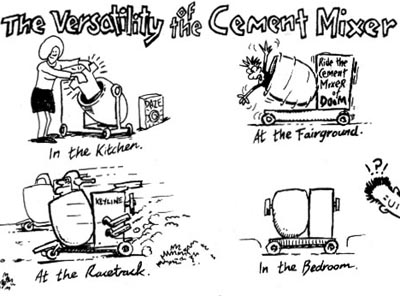 The Versatility of the Cement Mixer
DAZE
In the Kitchen.
Ride the
Cement
Mixer
of
DOOM
At the Fairground.
KEYLINE
At the Racetrack.
!?!
In the Bedroom.